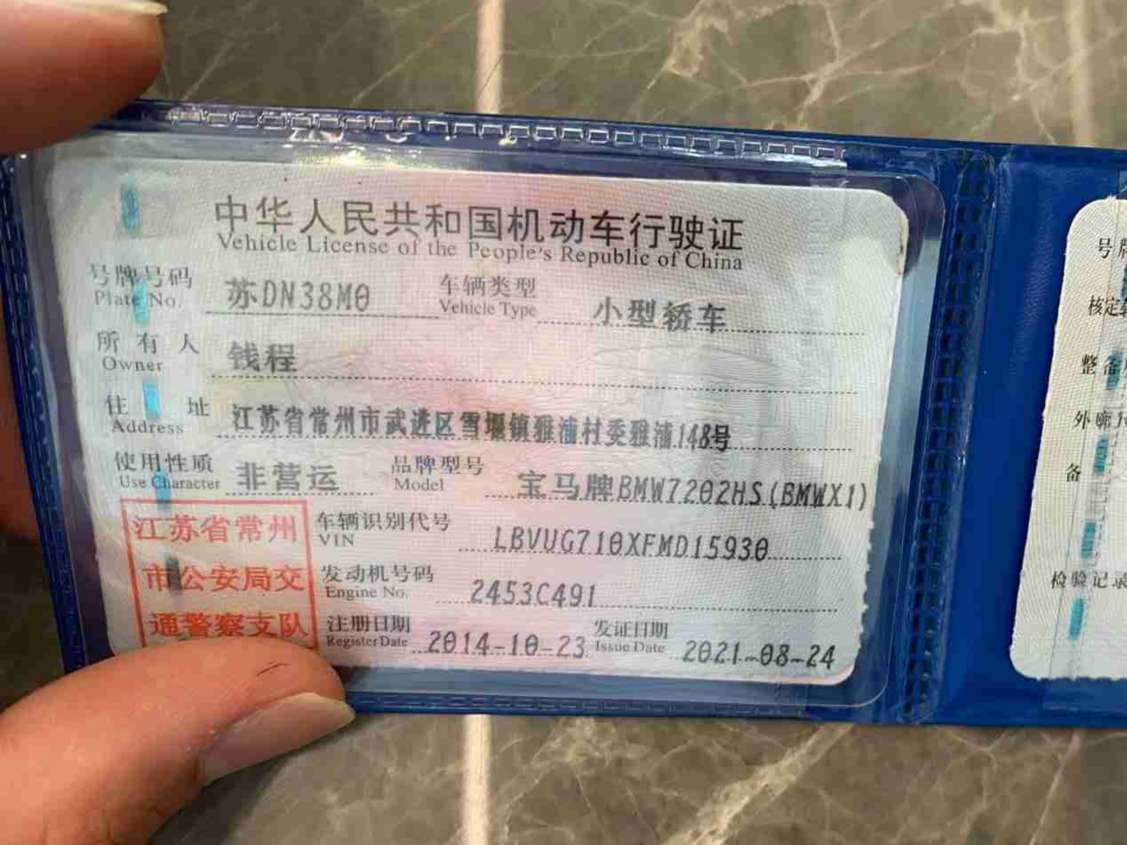 中华人民共和国机动车行驶证
Vehicle License of the People's Republic of China
号牌号码 苏DN38M0 车辆类型 小型轿车
Plate No. Vehicle Type
所有人 钱程
Owner
住址 江苏省常州市武进区雪堰镇雅浦村委雅浦148号
Address
使用性质 非营运 品牌型号 宝马牌BMW7202HS(BMWX1)
Use Character Model
江苏省常州
市公安局交
通警察支队
车辆识别代号 LBVUG710XFMD15930
VIN
发动机号码 2453C491
Engine No.
注册日期 2014-10-23 发证日期 2021-08-24
Register Date Issue Date
号牌
核定
整备
外廓
备
检验记录